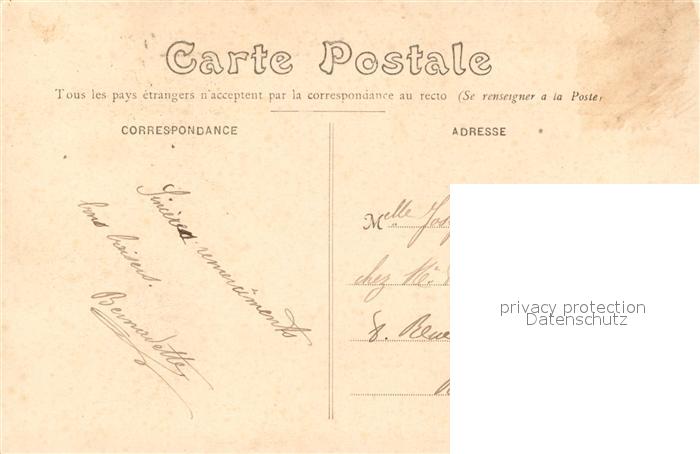 Carte Postale
Tous les pays étrangers n'acceptent par la correspondance au recto (Se renseigner a la Poste)
CORRESPONDANCE
ADRESSE
Sincères remerciments
bons baisers.
Bernadette
Melle
chez M.
privacy protection
Datenschutz